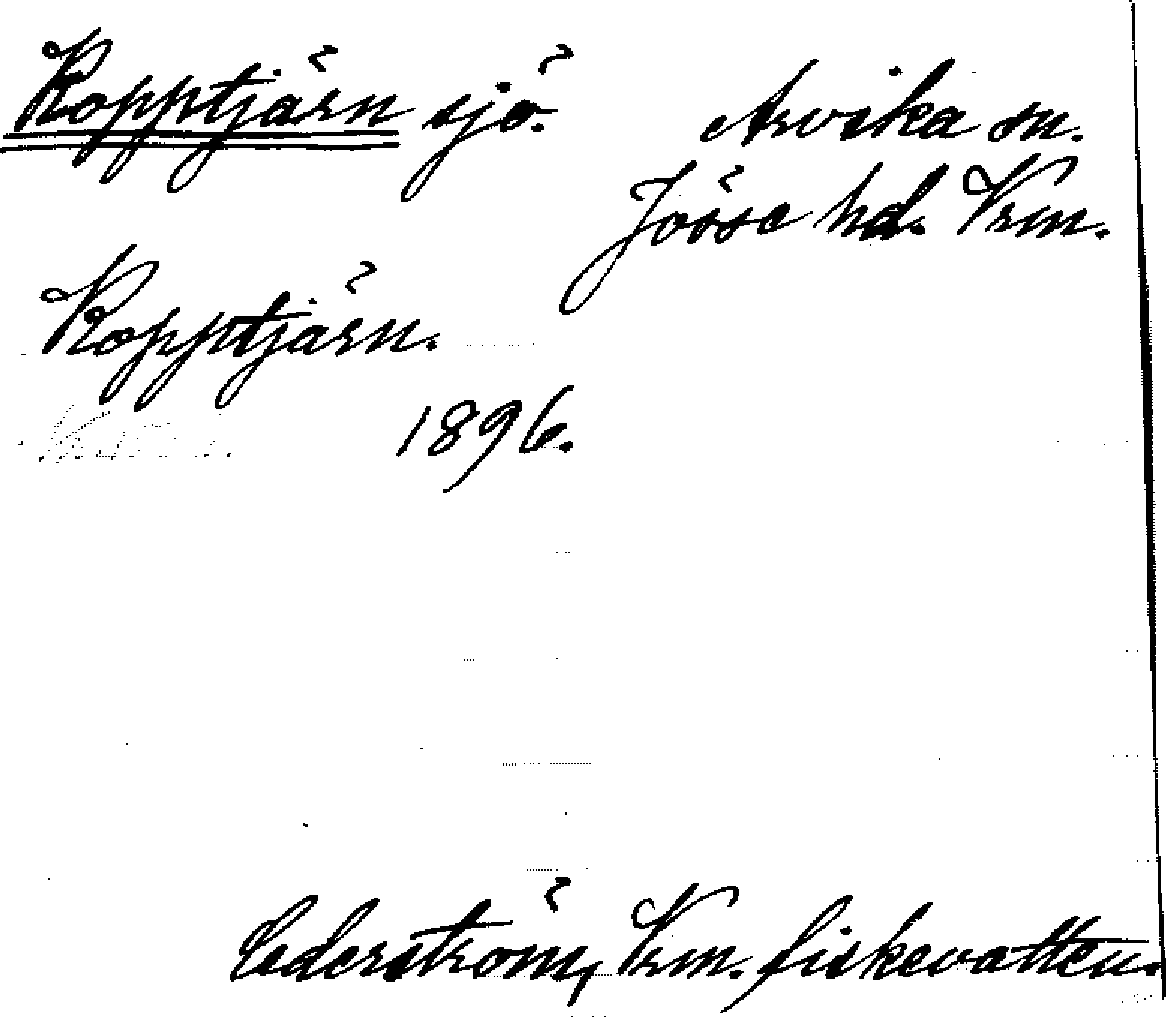 Kopptjärn sjö. Arvika sn.
Jösse hd. Vrm.
Kopptjärn.
1896.
Cederström, Vrm. fiskevatten.